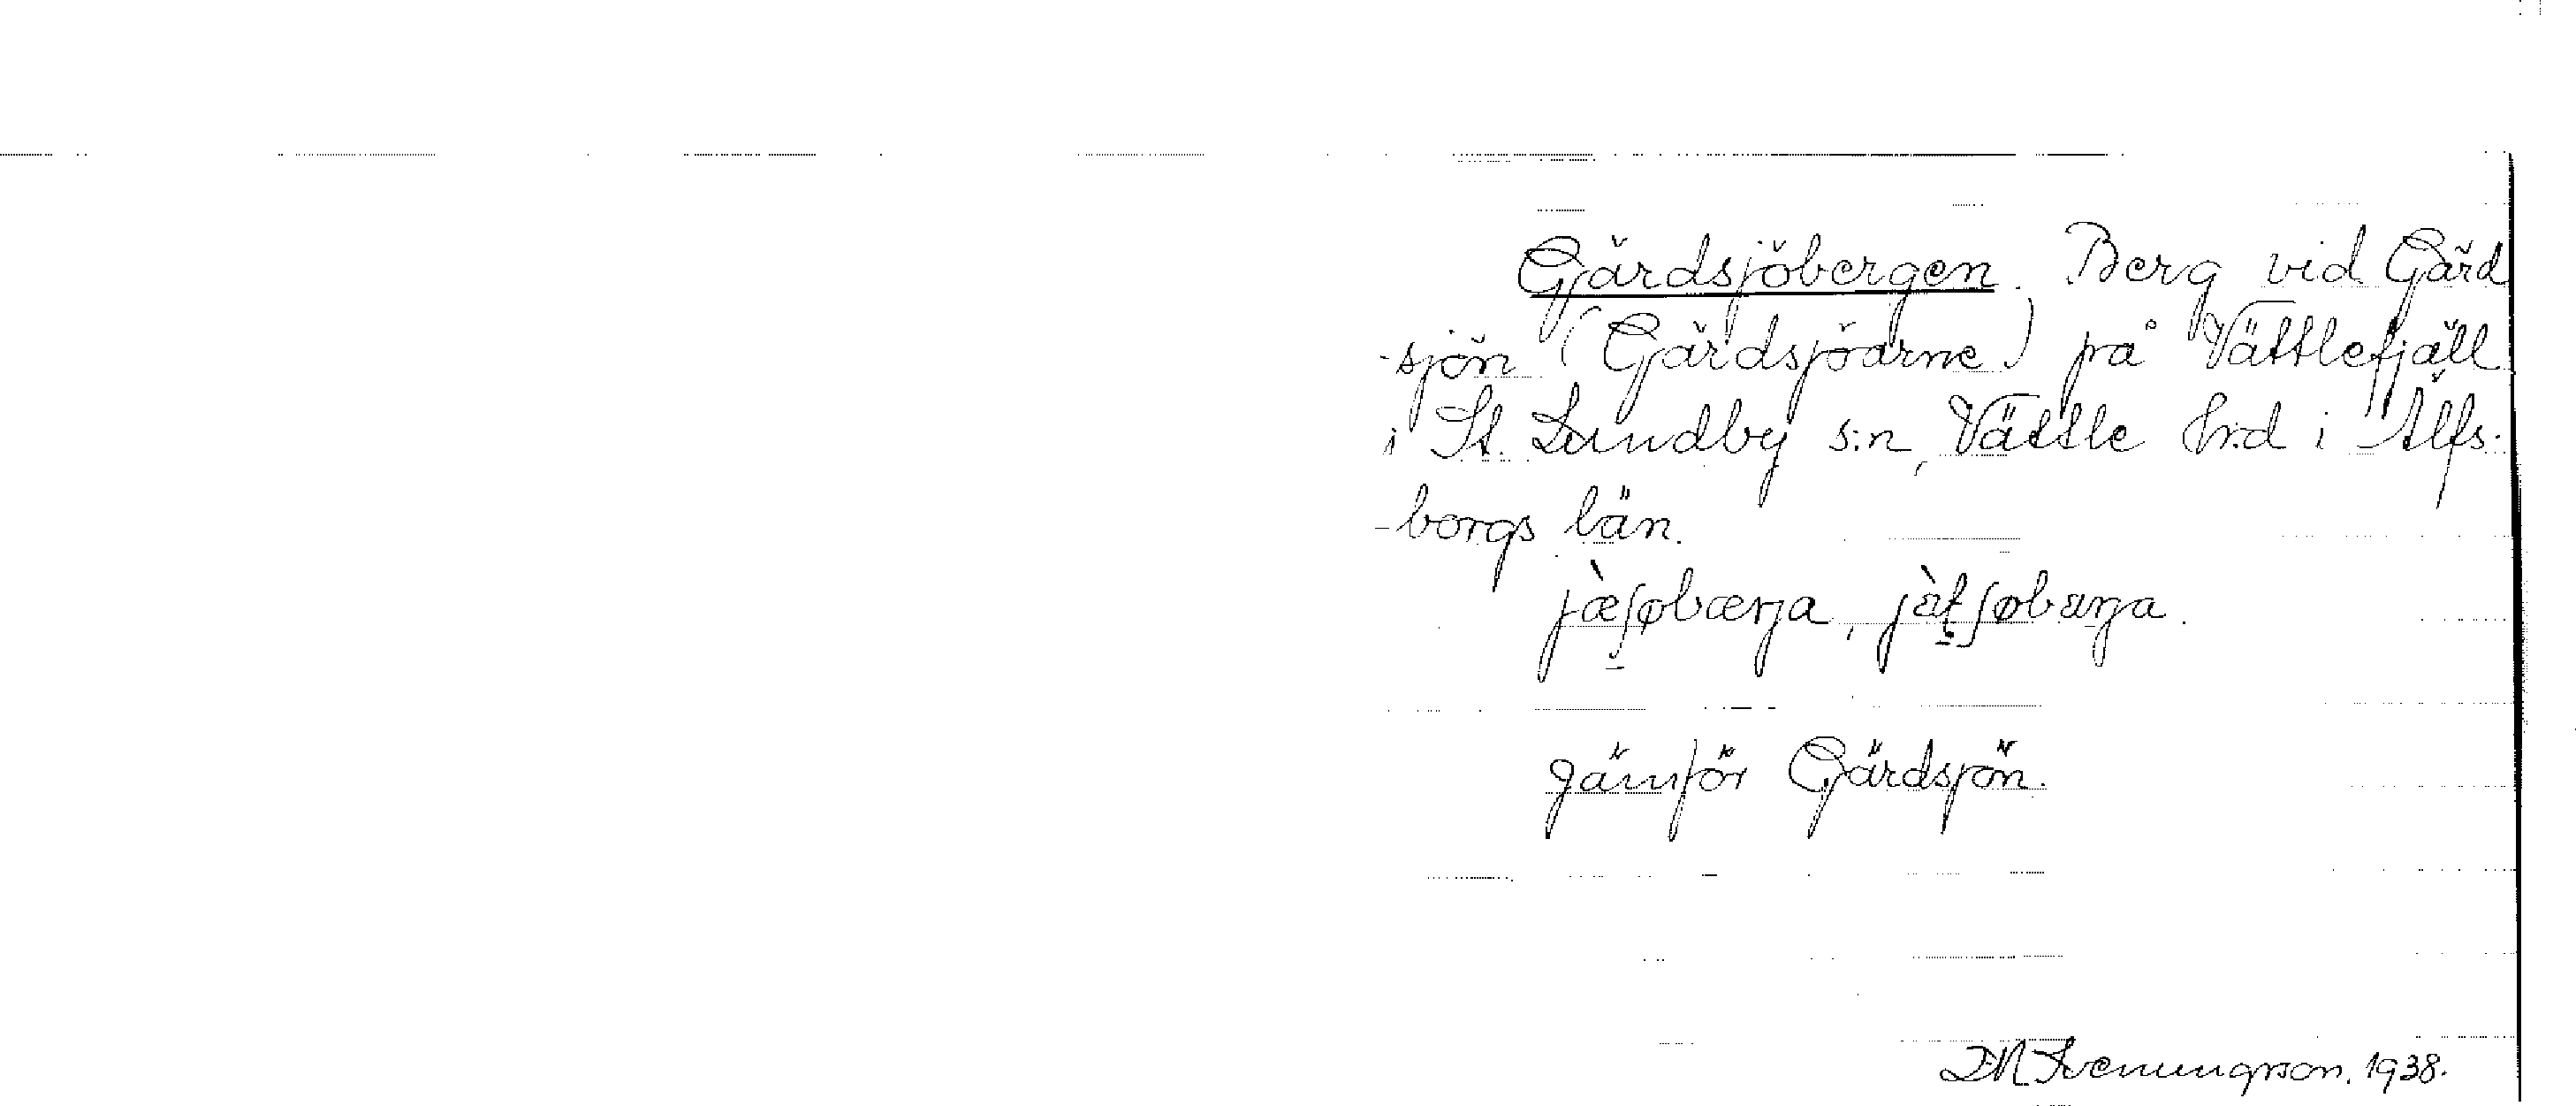 Gärdsjöbergen. Berg vid Gärd
-sjön (Gärdsjöarne) på Vättlefjäll
i St. Lundby s:n, Vättle hrd i Älfs-
-borgs län.
jæ̀ʃøbærja, jæ̀ʈʃøbærja.
Jämför Gärdsjön.
D.N. Svenungsson. 1938.